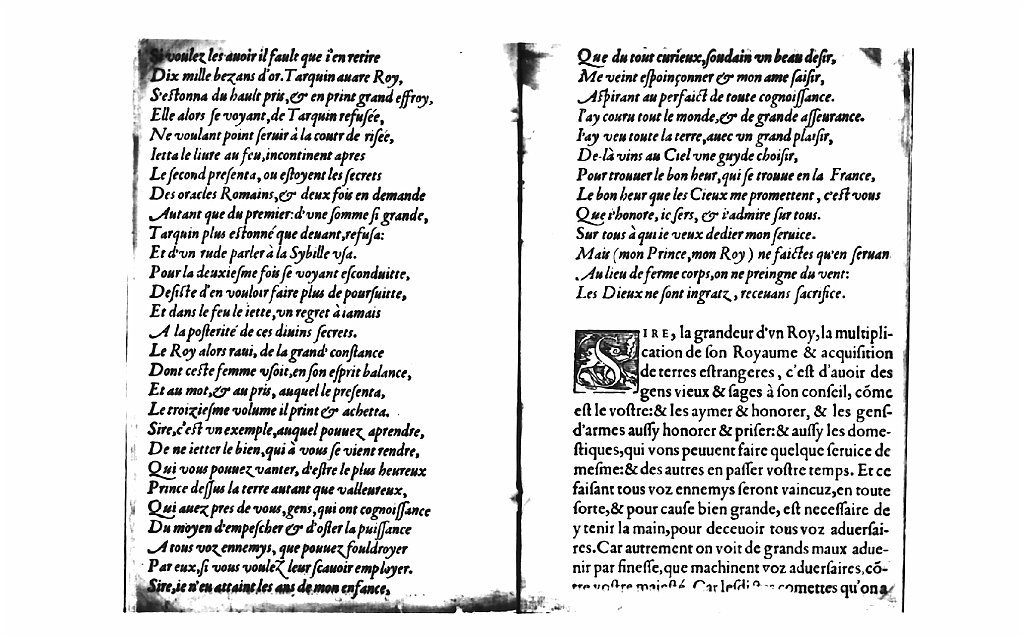 Si voulez les auoir il fault que i'en retire
Dix mille bezans d'or. Tarquin auare Roy,
S'estonna du hault pris, & en print grand effroy,
Elle alors se voyant, de Tarquin refusée,
Ne voulant point seruir à la court de risée,
Ietta le liure au feu, incontinent apres
Le second presenta, ou estoyent les secrets
Des oracles Romains, & deux fois en demande
Autant que du premier: d'vne somme si grande,
Tarquin plus estonné que deuant, refusa:
Et d'vn rude parler à la Sybille vsa.
Pour la deuxiesme fois se voyant esconduitte,
Desiste d'en vouloir faire plus de poursuitte,
Et dans le feu le iette, vn regret à iamais
A la posterité de ces diuins secrets.
Le Roy alors raui, de la grand' constance
Dont ceste femme vsoit, en son esprit balance,
Et au mot, & au pris, auquel le presenta,
Le troiziesme volume il print & achetta.
Sire, c'est vn exemple, auquel pouuez aprendre,
De ne ietter le bien, qui à vous se vient rendre,
Qui vous pouuez vanter, d'estre le plus heureux
Prince dessus la terre autant que valleureux,
Qui auez pres de vous, gens, qui ont cognoissance
Du moyen d'empescher & d'oster la puissance
A tous voz ennemys, que pouuez fouldroyer
Par eux, si vous voulez leur scauoir employer.
Sire, ie n'eu attaint les ans de mon enfance,
Que du tout curieux, soudain vn beau desir,
Me veint espoinçonner & mon ame saisir,
Aspirant au perfaict de toute cognoissance.
I'ay couru tout le monde, & de grande asseurance.
I'ay veu toute la terre, auec vn grand plaisir,
De-là vins au Ciel vne guyde choisir,
Pour trouuer le bon heur, qui se trouue en la France,
Le bon heur que les Cieux me promettent, c'est vous
Que i'honore, ie sers, & i'admire sur tous.
Sur tous à qui ie veux dedier mon seruice.
Mais (mon Prince, mon Roy) ne faictes qu'en seruan
Au lieu de ferme corps, on ne preingne du vent:
Les Dieux ne sont ingratz, receuans sacrifice.
SIRE, la grandeur d'vn Roy, la multipli-
cation de son Royaume & acquisition
de terres estrangeres, c'est d'auoir des
gens vieux & sages à son conseil, cõme
est le vostre: & les aymer & honorer, & les gens-
d'armes aussy honorer & priser: & aussy les dome-
stiques, qui vons peuuent faire quelque seruice de
mesme: & des autres en passer vostre temps. Et ce
faisant tous voz ennemys seront vaincuz, en toute
sorte, & pour cause bien grande, est necessaire de
y tenir la main, pour deceuoir tous voz aduersai-
res. Car autrement on voit de grands maux adue-
nir par finesse, que machinent voz aduersaires, cõ-
tre vostre maiesté. Car comettes qu'on a